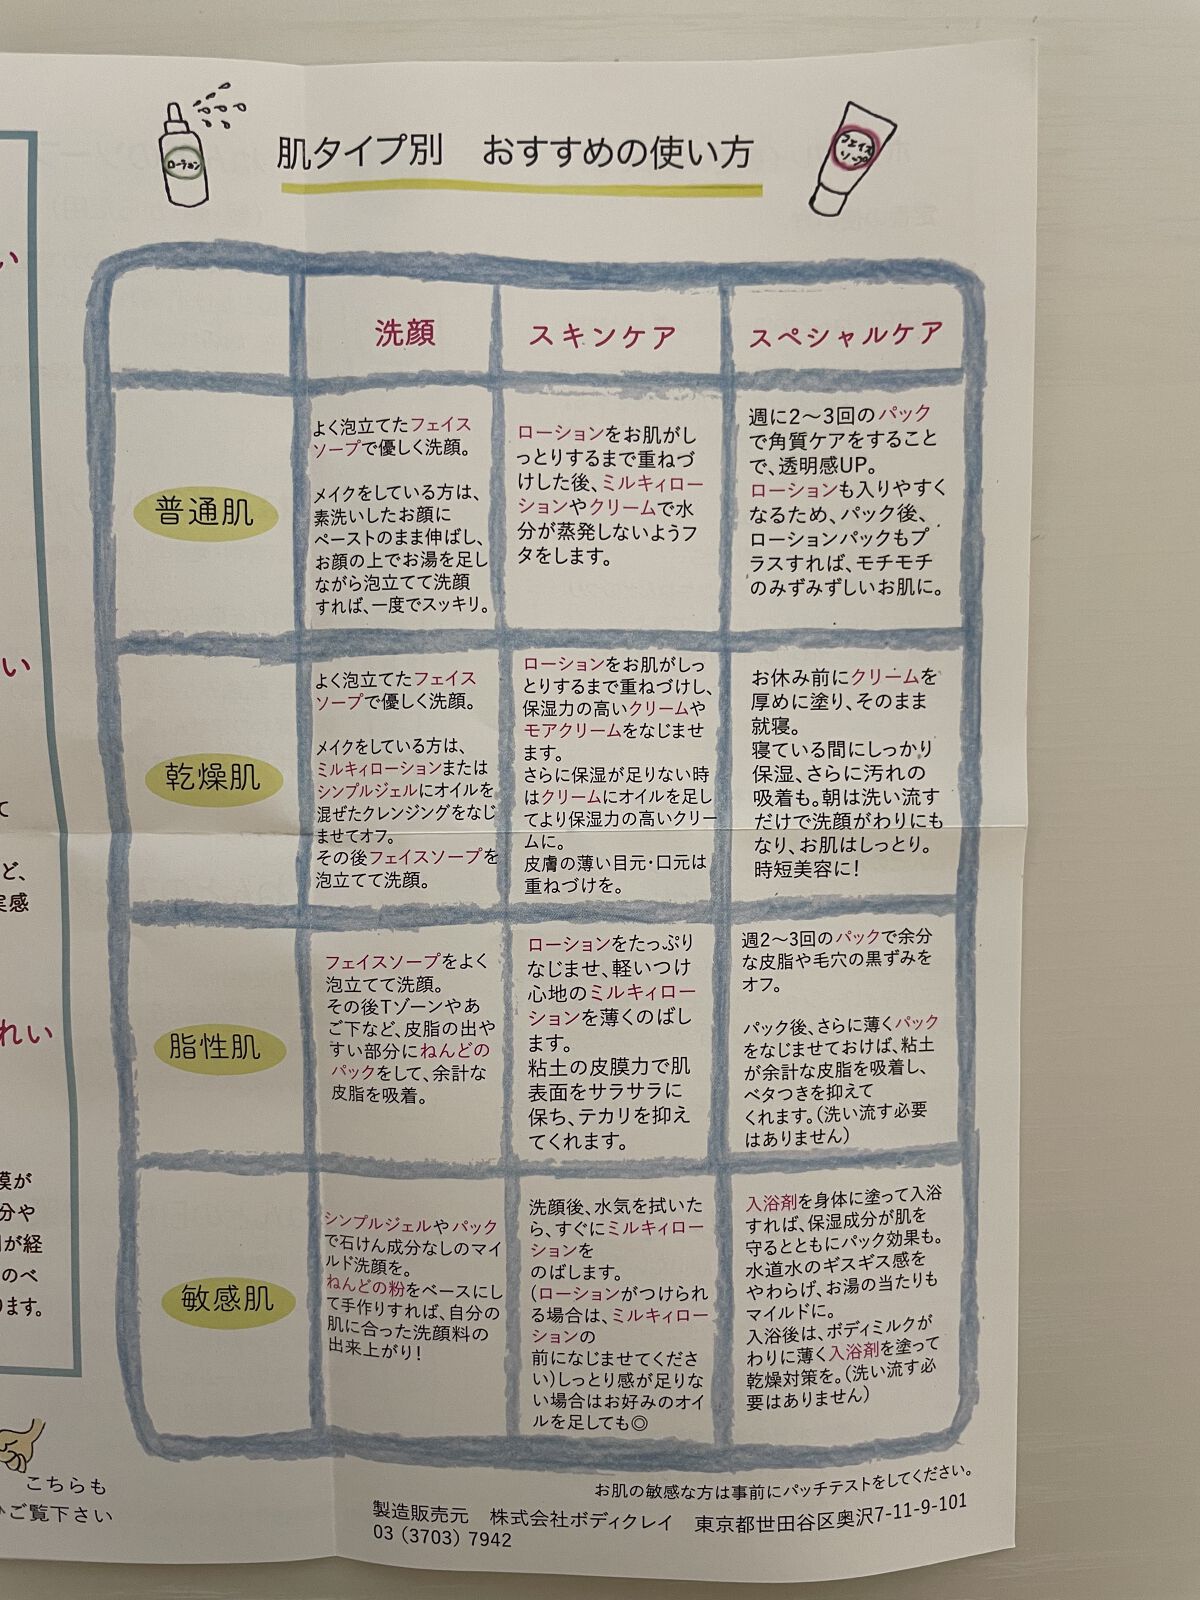 ローション
フェイス
ソープ
肌タイプ別　おすすめの使い方
洗顔
スキンケア
スペシャルケア
普通肌
よく泡立てたフェイス
ソープで優しく洗顔。
メイクをしている方は、
素洗いしたお顔に
ペーストのまま伸ばし、
お顔の上でお湯を足し
ながら泡立てて洗顔
すれば、一度でスッキリ。
ローションをお肌がし
っとりするまで重ねづ
けした後、ミルキィロー
ションやクリームで水
分が蒸発しないようフ
タをします。
週に2〜3回のパック
で角質ケアをすること
で、透明感UP。
ローションも入りやすく
なるため、パック後、
ローションパックもプ
ラスすれば、モチモチ
のみずみずしいお肌に。
乾燥肌
よく泡立てたフェイス
ソープで優しく洗顔。
メイクをしている方は、
ミルキィローションまたは
シンプルジェルにオイルを
混ぜたクレンジングをなじ
ませてオフ。
その後フェイスソープを
泡立てて洗顔。
ローションをお肌がしっ
とりするまで重ねづけし、
保湿力の高いクリームや
モアクリームをなじませ
ます。
さらに保湿が足りない時
はクリームにオイルを足し
てより保湿力の高いクリー
ムに。
皮膚の薄い目元・口元は
重ねづけを。
お休み前にクリームを
厚めに塗り、そのまま
就寝。
寝ている間にしっかり
保湿、さらに汚れの
吸着も。朝は洗い流す
だけで洗顔がわりにも
なり、お肌はしっとり。
時短美容に!
脂性肌
フェイスソープをよく
泡立てて洗顔。
その後Tゾーンやあ
ご下など、皮脂の出や
すい部分にねんどの
パックをして、余計な
皮脂を吸着。
ローションをたっぷり
なじませ、軽いつけ
心地のミルキィロー
ションを薄くのばし
ます。
粘土の皮膜力で肌
表面をサラサラに
保ち、テカリを抑え
てくれます。
週2〜3回のパックで余分
な皮脂や毛穴の黒ずみを
オフ。
パック後、さらに薄くパック
をなじませておけば、粘土
が余計な皮脂を吸着し、
ベタつきを抑えて
くれます。(洗い流す必要
はありません)
敏感肌
シンプルジェルやパック
で石けん成分なしのマイ
ルド洗顔を。
ねんどの粉をベースにし
て手作りすれば、自分の
肌に合った洗顔料の
出来上がり!
洗顔後、水気を拭いた
ら、すぐにミルキィロー
ションを
のばします。
(ローションがつけられ
る場合は、ミルキィロー
ションの
前になじませてくださ
い)しっとり感が足りな
い場合はお好みのオイ
ルを足しても◎
入浴剤を身体に塗って入浴
すれば、保湿成分が肌を
守るとともにパック効果も。
水道水のギスギス感を
やわらげ、お湯の当たりも
マイルドに。
入浴後は、ボディミルクが
わりに薄く入浴剤を塗って
乾燥対策を。(洗い流す必
要はありません)
お肌の敏感な方は事前にパッチテストをしてください。
製造販売元　株式会社ボディクレイ　東京都世田谷区奥沢7-11-9-101
03 (3703) 7942
い
い
て
ど、
実感
れい
膜が
分や
が経
のべ
ります。
こちらも
ご覧下さい